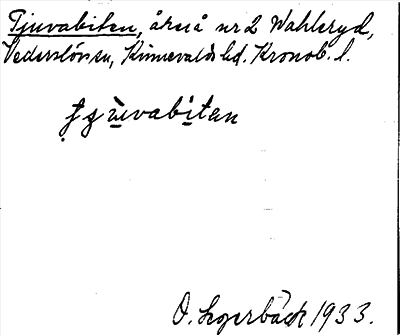 Tjuvabiten, åker å nr 2 Wahleryd,
Vederslövs sn, Kinnevalds hd. Kronob. l.
O. Lagerbäck 1933.